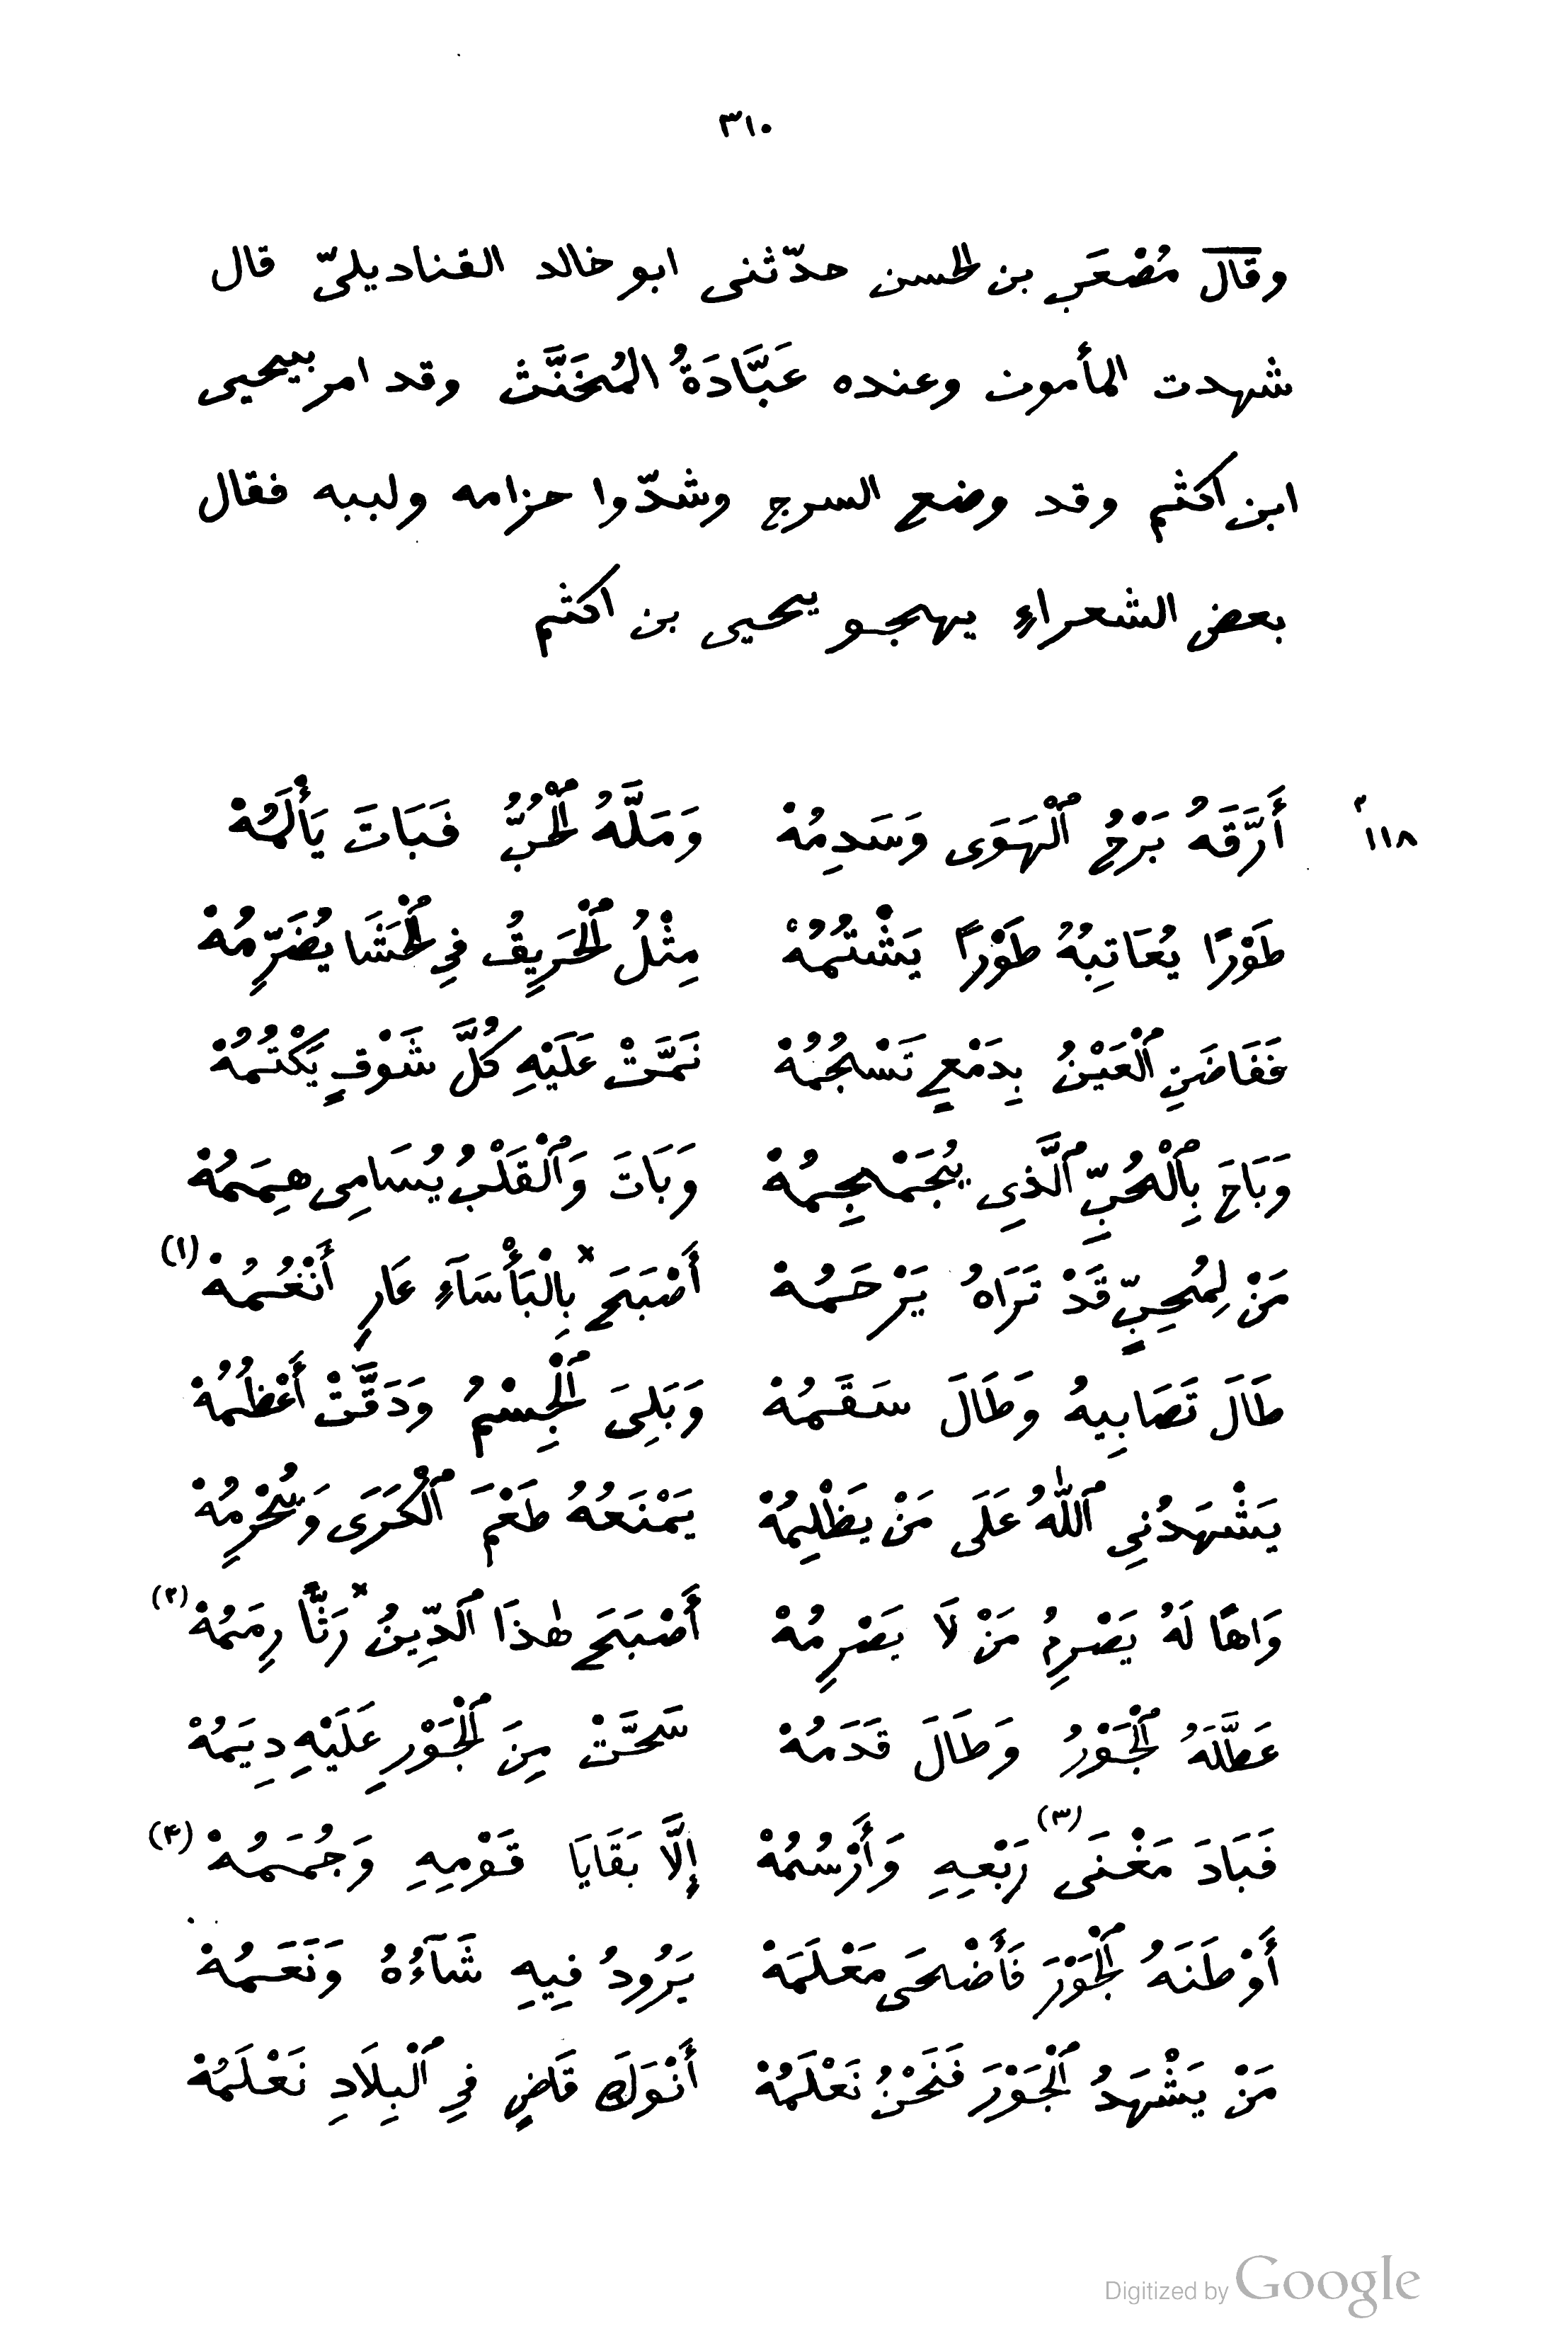 ٣١٠
وقال مُصْعَب بن الحسن حدّثنى ابو خالد القناديلىّ قال
شهدت المأمون وعنده عَبَّادَةُ المُخَنَّث وقد امر بيحيى
ابن اكثم وقد وضع السرج وشدّوا حزامه ولببه فقال
بعض الشعراء يهجو يحيى بن اكثم
١١٨ أَرَّقَهُ بَرْحُ ٱلْهَوَى وَسَدِمُهْ وَمَلَّهُ ٱلْحُبُّ فَبَاتَ يَأْلَمُهْ
طَوْرًا يُعَاتِبُهُ طَوْرًا يَشْتُمُهْ مِثْلُ ٱلْحَرِيقُ فِي ٱلْحَشَا يُضَرِّمُهْ
فَفَاضَتِ ٱلْعَيْنُ بِدَمْعٍ تَسْجُمُهْ نَمَّتْ عَلَيْهِ كُلَّ شَوْقٍ يَكْتُمُهْ
وَبَاحَ بِٱلْحُبِّ ٱلَّذِى يُجَمْجِمُهْ وَبَاتَ وَٱلْقَلْبُ يُسَامِى هِمَمُهْ
مَنْ لِمُحِبٍّ قَدْ تَرَاهُ يَرْحَمُهْ أَصْبَحَ بِالْبَأْسَآءِ عَارِ أَنْعُمُهْ (١)
طَالَ تَصَابِيهُ وَطَالَ سَقَمُهْ وَبَلِىَ ٱلْجِسْمُ وَدَقَّتْ أَعْظُمُهْ
يَشْهَدُنِى ٱللّٰهُ عَلَى مَنْ يَظْلِمُهْ يَمْنَعُهُ طَعْمَ ٱلْكَرَى وَيُحْرِمُهْ
وَاهًا لَهُ يَصْرِمُ مَنْ لَا يَصْرِمُهْ أَصْبَحَ هٰذَا ٱلدِّينُ رَثًّا رِمَمُهْ (٢)
عَطَّلَهُ ٱلْجَوْرُ وَطَالَ قَدَمُهْ سَحَّتْ مِنَ ٱلْجَوْرِ عَلَيْهِ دِيَمُهْ
فَبَادَ مَغْنَى (٣) رَبْعِهِ وَأَرْسُمُهْ إِلَّا بَقَايَا قَوْمِهِ وَجُمَمُهْ (٤)
أَوْطَنَهُ ٱلْجَوْرَ فَأَضْحَى مَعْلَمَهْ يَرُودُ فِيهِ شَآءُهُ وَنَعَمُهْ
مَنْ يَشْهَدُ ٱلْجَوْرَ فَنَحْنُ نَعْلَمُهْ أَنْوَكَ قَاضٍ فِي ٱلْبِلَادِ نَعْلَمُهْ
Digitized by Google